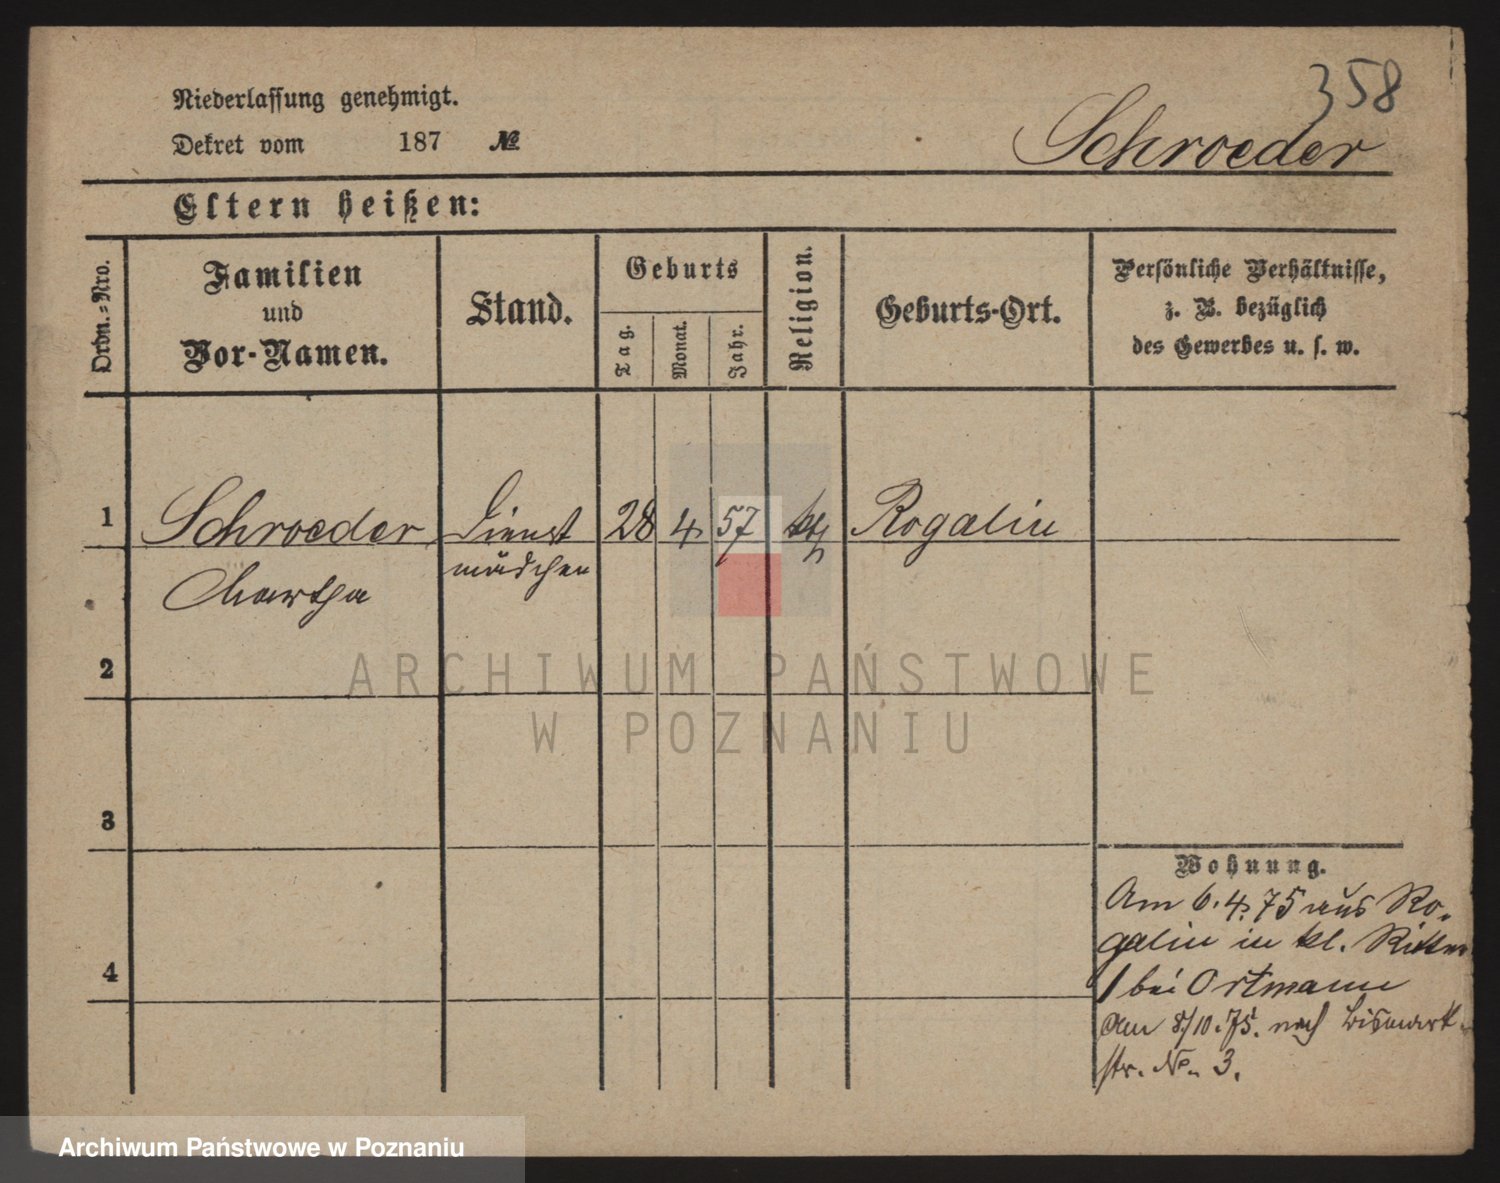 358
Niederlassung genehmigt.
Dekret vom 187 №
Schroeder
Eltern heißen:
Ordn.-Nro.
Familien
und
Vor-Namen.
Stand.
Geburts
Tag.
Monat.
Jahr.
Religion.
Geburts-Ort.
Persönliche Verhältnisse,
z. B. bezüglich
des Gewerbes u. s. w.
1 Schroeder Dienst 28 4 57 kth Rogalin
Martha mädchen
2
3
4
Wohnung.
Am 6.4.75 aus Ro-
galin in kl. Ritter
1 bei Ortmann
Am 8/10.75. nach Bismark
str. No. 3.
ARCHIWUM PAŃSTWOWE
W POZNANIU
Archiwum Państwowe w Poznaniu